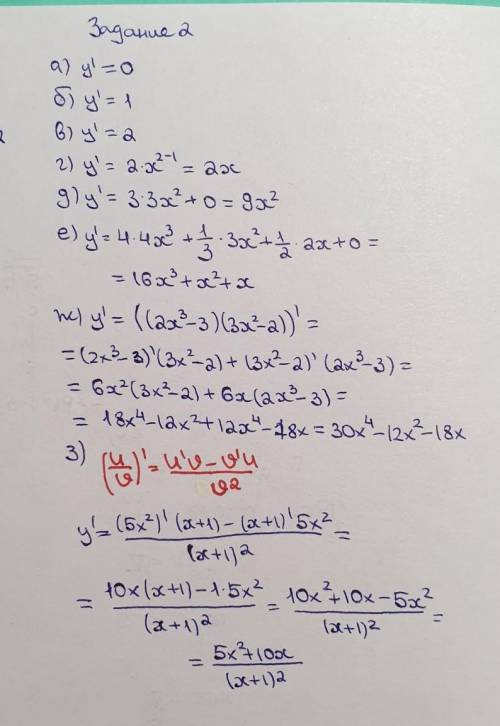 Задание 2
а) y' = 0
б) y' = 1
в) y' = 2
г) y' = 2·x²⁻¹ = 2x
д) y' = 3·3x² + 0 = 9x²
е) y' = 4·4x³ + 1/3·3x² + 1/2·2x + 0 =
= 16x³ + x² + x
ж) y' = ((2x³ - 3)(3x² - 2))' =
= (2x³ - 3)'(3x² - 2) + (3x² - 2)'(2x³ - 3) =
= 6x²(3x² - 2) + 6x(2x³ - 3) =
= 18x⁴ - 12x² + 12x⁴ - 18x = 30x⁴ - 12x² - 18x
з) (u/v)' = (u'v - v'u)/v2
y' = ((5x²)'(x+1) - (x+1)'5x²)/(x+1)² =
= (10x(x+1) - 1·5x²)/(x+1)² = (10x² + 10x - 5x²)/(x+1)² =
= (5x² + 10x)/(x+1)²